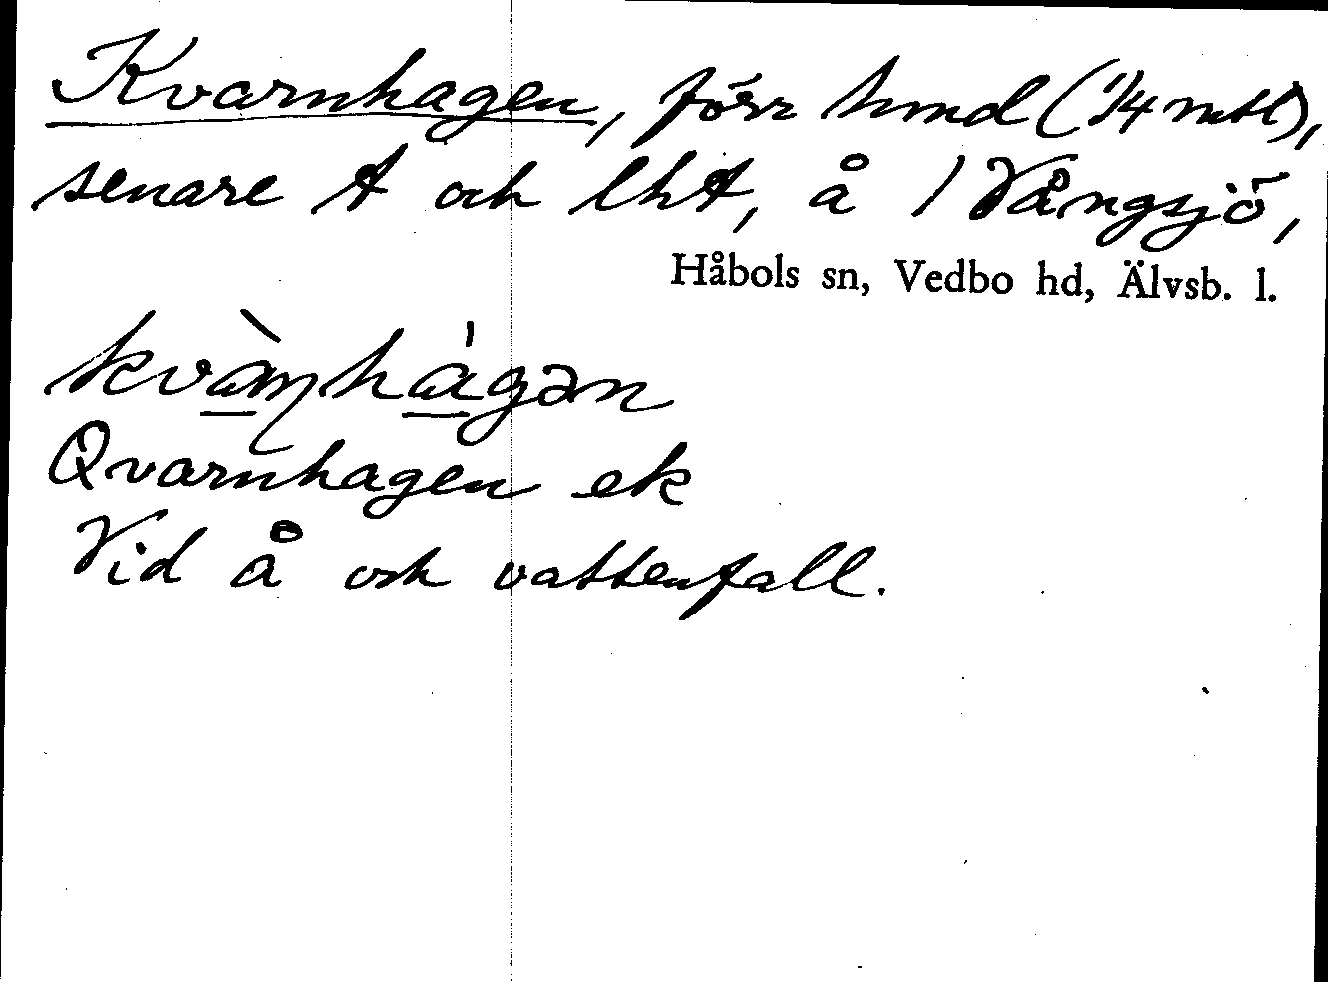 Kvarnhagen, förr hmd (1/4 mtl),
senare t och lht, å 1 Vångsjö,
Håbols sn, Vedbo hd, Älvsb. l.
kvàɳhágən
Qvarnhagen ek
Vid å och vattenfall.